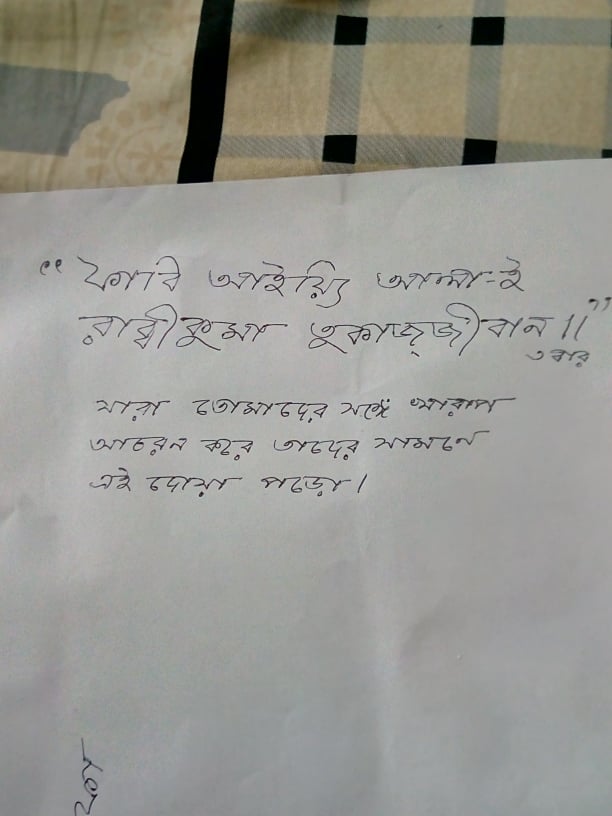 “ ফাবি আইয়্যি আলা-ই
রাব্বীকুমা তুকাজ্জীবান॥ ”
৩ বার
যারা তোমাদের সঙ্গে খারাপ
আচরন করে তাদের সামনে
এই দোয়া পড়ো।